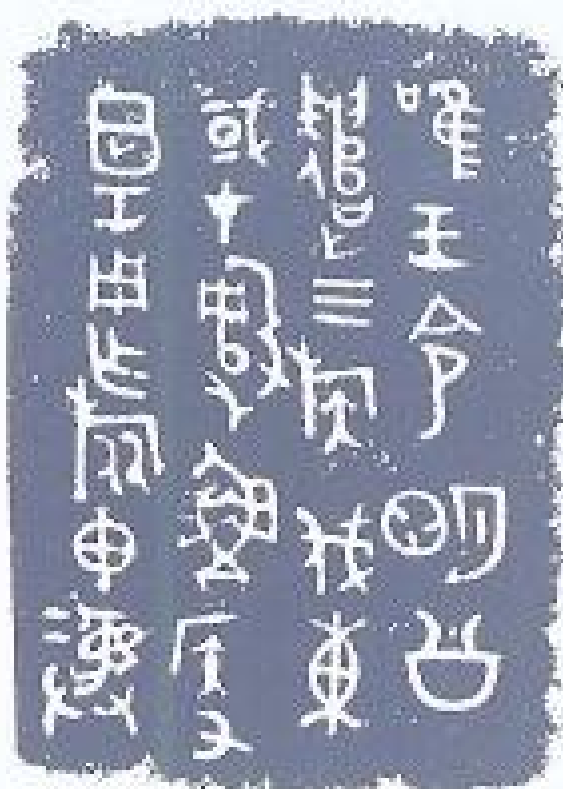 唯王令明公
遣三族伐東
或才魯�/侯又
工用乍旅彝